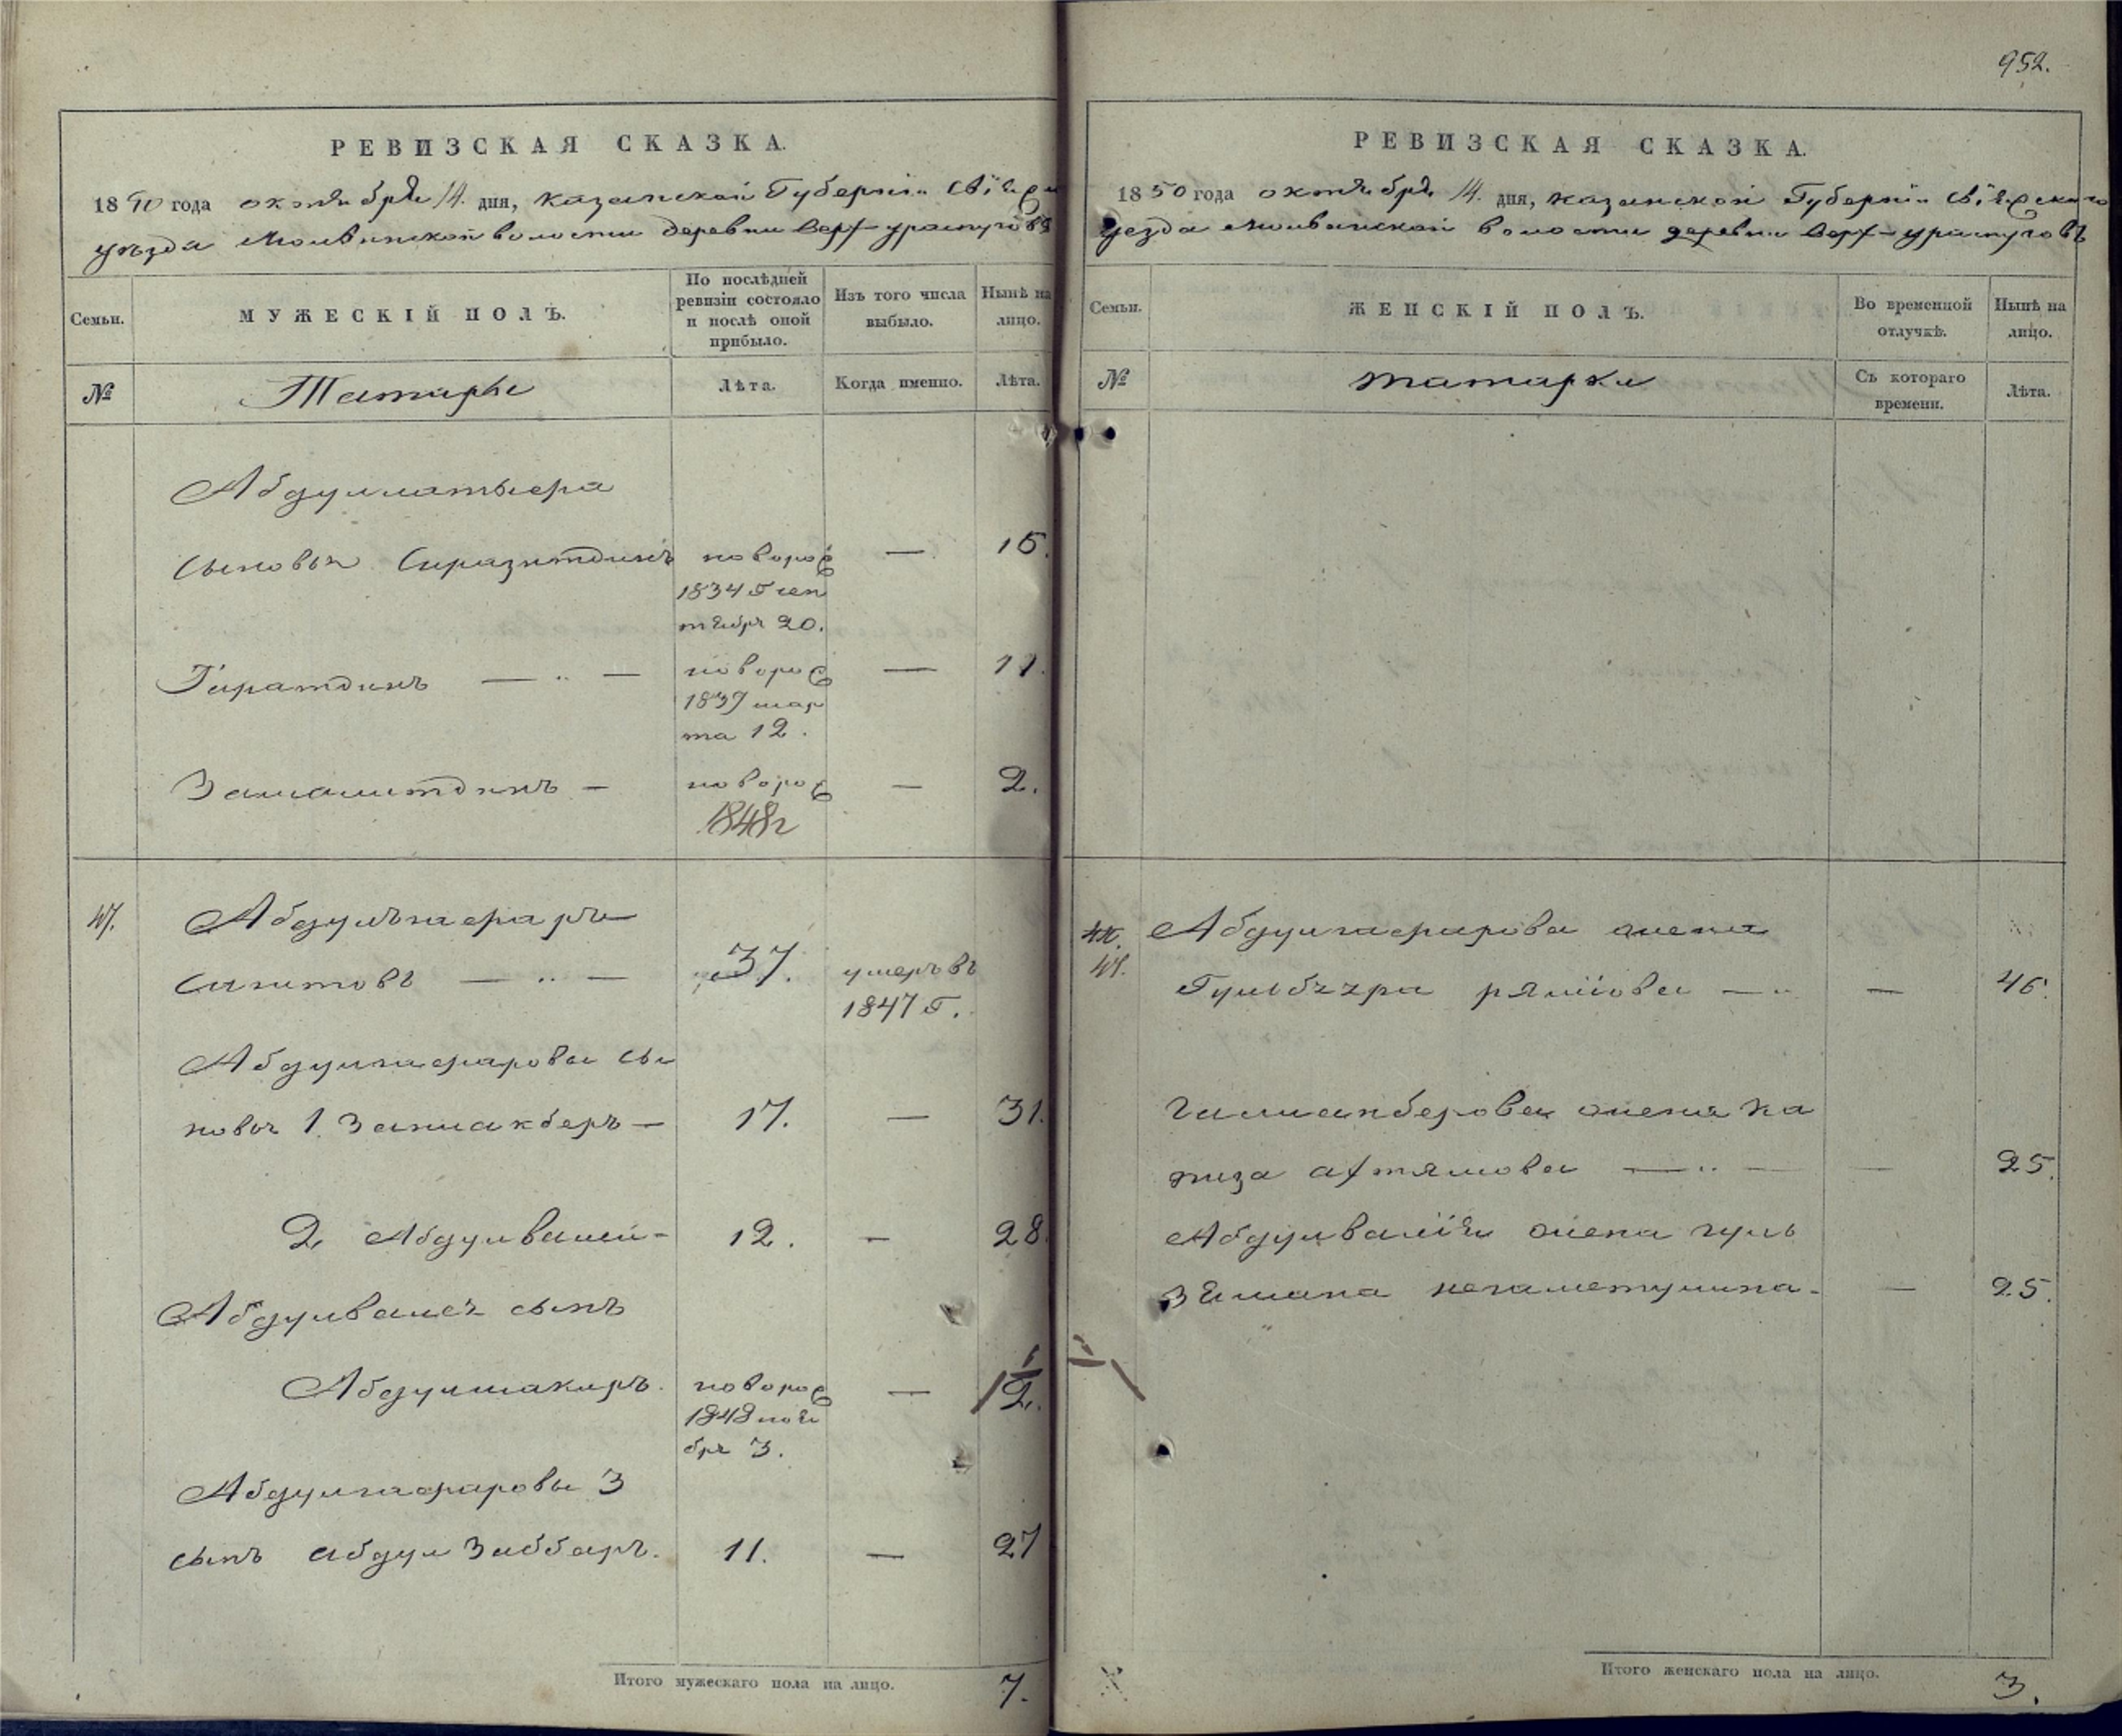 РЕВИЗСКАЯ СКАЗКА.
1850 года октября 14. дня, Казанской Губерніи Свіяжс
уѣзда Молвинской волости деревни Верх-ураспугов
Семьи.
МУЖЕСКІЙ ПОЛЪ.
По послѣдней
ревизіи состояло
и послѣ оной
прибыло.
Изъ того числа
выбыло.
Нынѣ на
лицо.
№
Татары
Лѣта.
Когда именно.
Лѣта.
Абдуллатыфа
сыновья Сиразитдинъ новорож — 15.
1834 Г сен
тября 20.
Гиратдинъ — " — новорож — 11.
1839 мар
та 12.
Замалитдинъ — новорож — 2.
1848г
47. Абдулгафаръ
Сагитовъ — " — 37. умеръ въ
1847 Г.
Абдулгафарова сы
новья 1. Залиакберъ — 17. — 31.
2. Абдулвалей - 12. — 28.
Абдулвалея сынъ
Абдулшакиръ. новорож — 1/2.
1848 ноя
бря 3.
Абдулгафаровы 3
сынъ Абдул Заббаръ. 11. — 27
Итого мужескаго пола на лицо. 7.
952.
РЕВИЗСКАЯ СКАЗКА.
1850 года октября 14. дня, Казанской Губерніи Свіяжскаго
уезда Молвинской волости деревни Верх-ураспуговъ
Семьи.
ЖЕНСКІЙ ПОЛЪ.
Во временной
отлучкѣ.
Нынѣ на
лицо.
№
татарки
Съ котораго
времени.
Лѣта.
47. Абдулгафарова жена
Гульбзяра — " — 46.
Галиакберова жена Ха
физа Ахтямова — " — — 25.
Абдулвалія жена Гуль
зямана Негаметуллина - — 25.
Итого женскаго пола на лицо. 3.